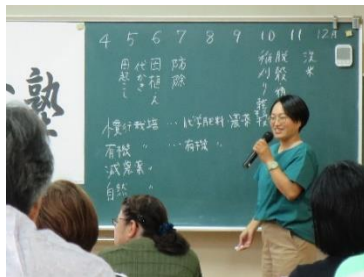 塾
4 5 6 7 8 9 10 11 12月
田起こし
代かき
田植え
防除
稲刈り
脱穀
慣行栽培 … 化学肥料・農薬
有機 〃 … 有機 〃
減農薬 〃
自然 〃